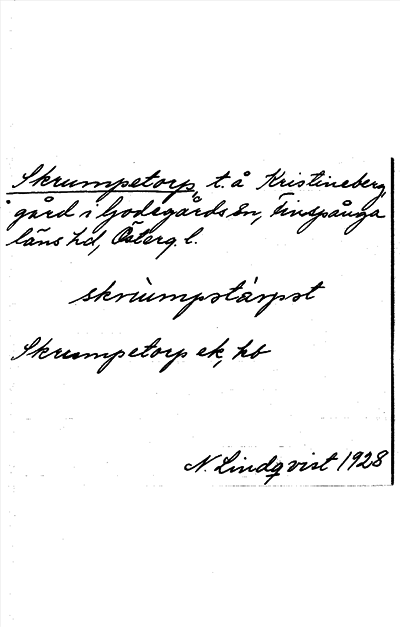 Skrumpetorp, t. å Kristineberg,
gård i Godegårds sn, Finspånga
läns hd, Österg. l.
skrùmpətàrpət
Skrumpetorp ek, hb
N. Lindqvist 1928